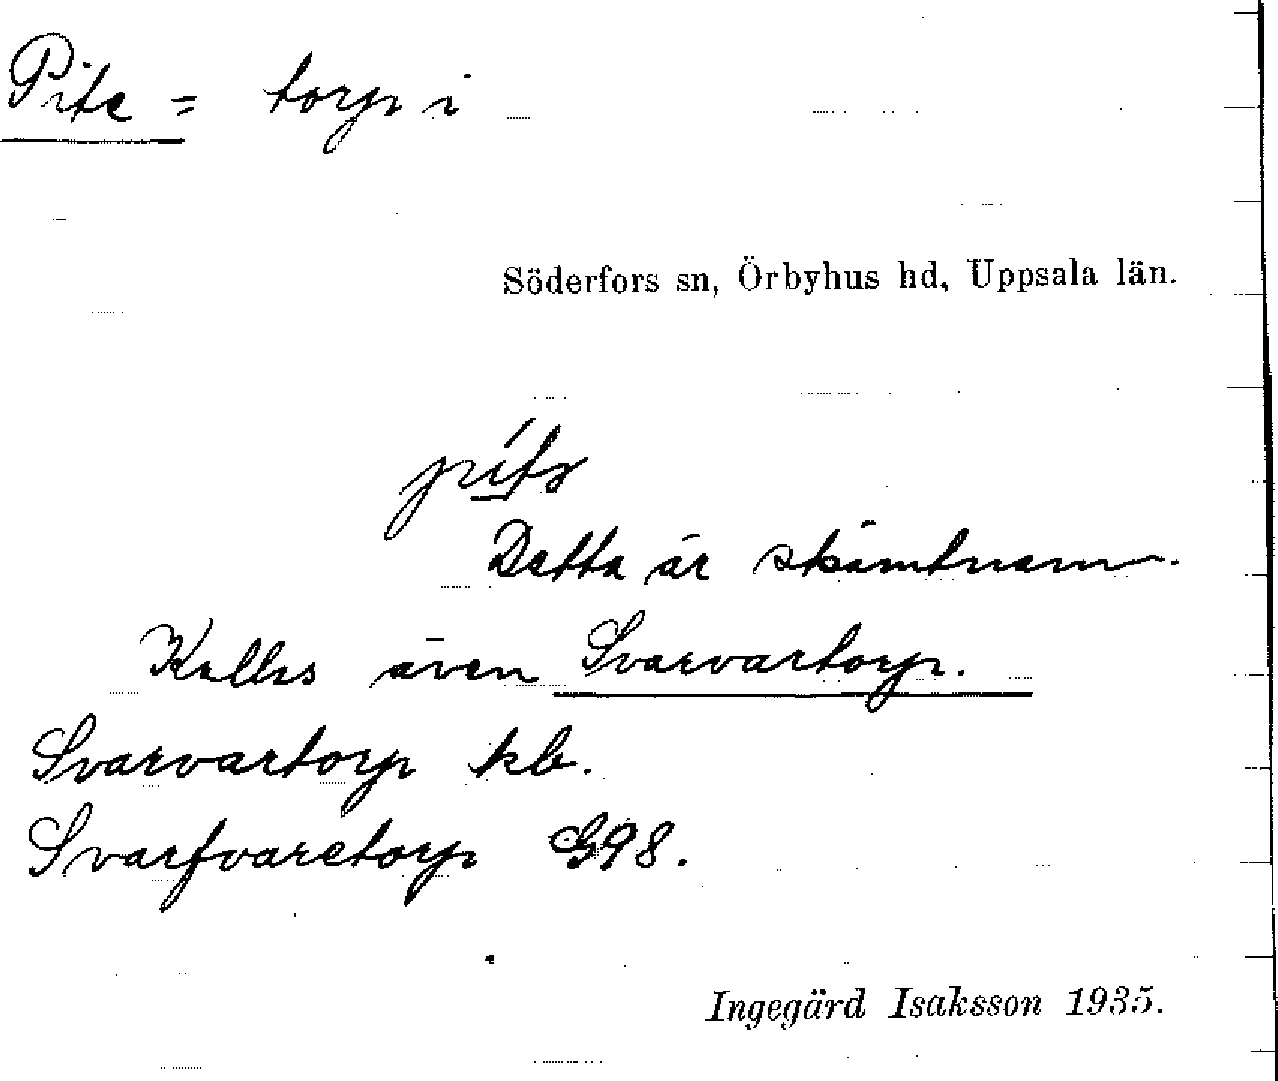 Pite = torp i
Söderfors sn, Örbyhus hd, Uppsala län.
Detta är skämtnamn.
Kallas även Svarvartorp.
Svarvartorp kb.
Svarfvaretorp G98.
Ingegärd Isaksson 1935.